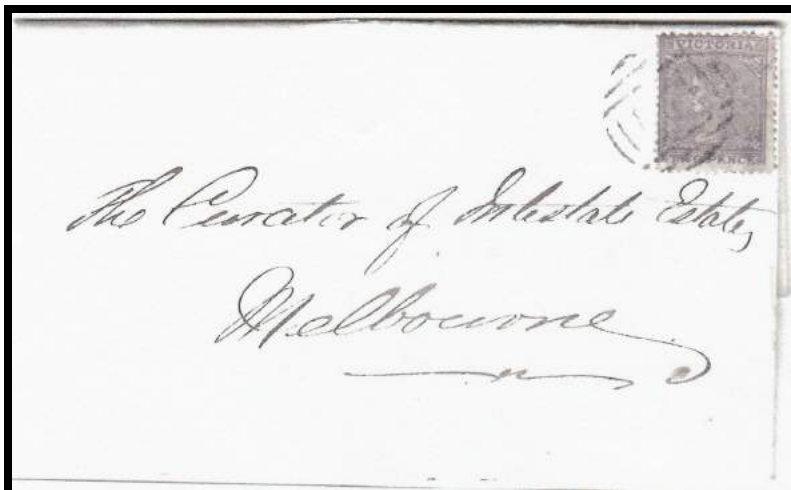 VICTORIA
TWO PENCE
The Curator of Intestate Estates
Melbourne